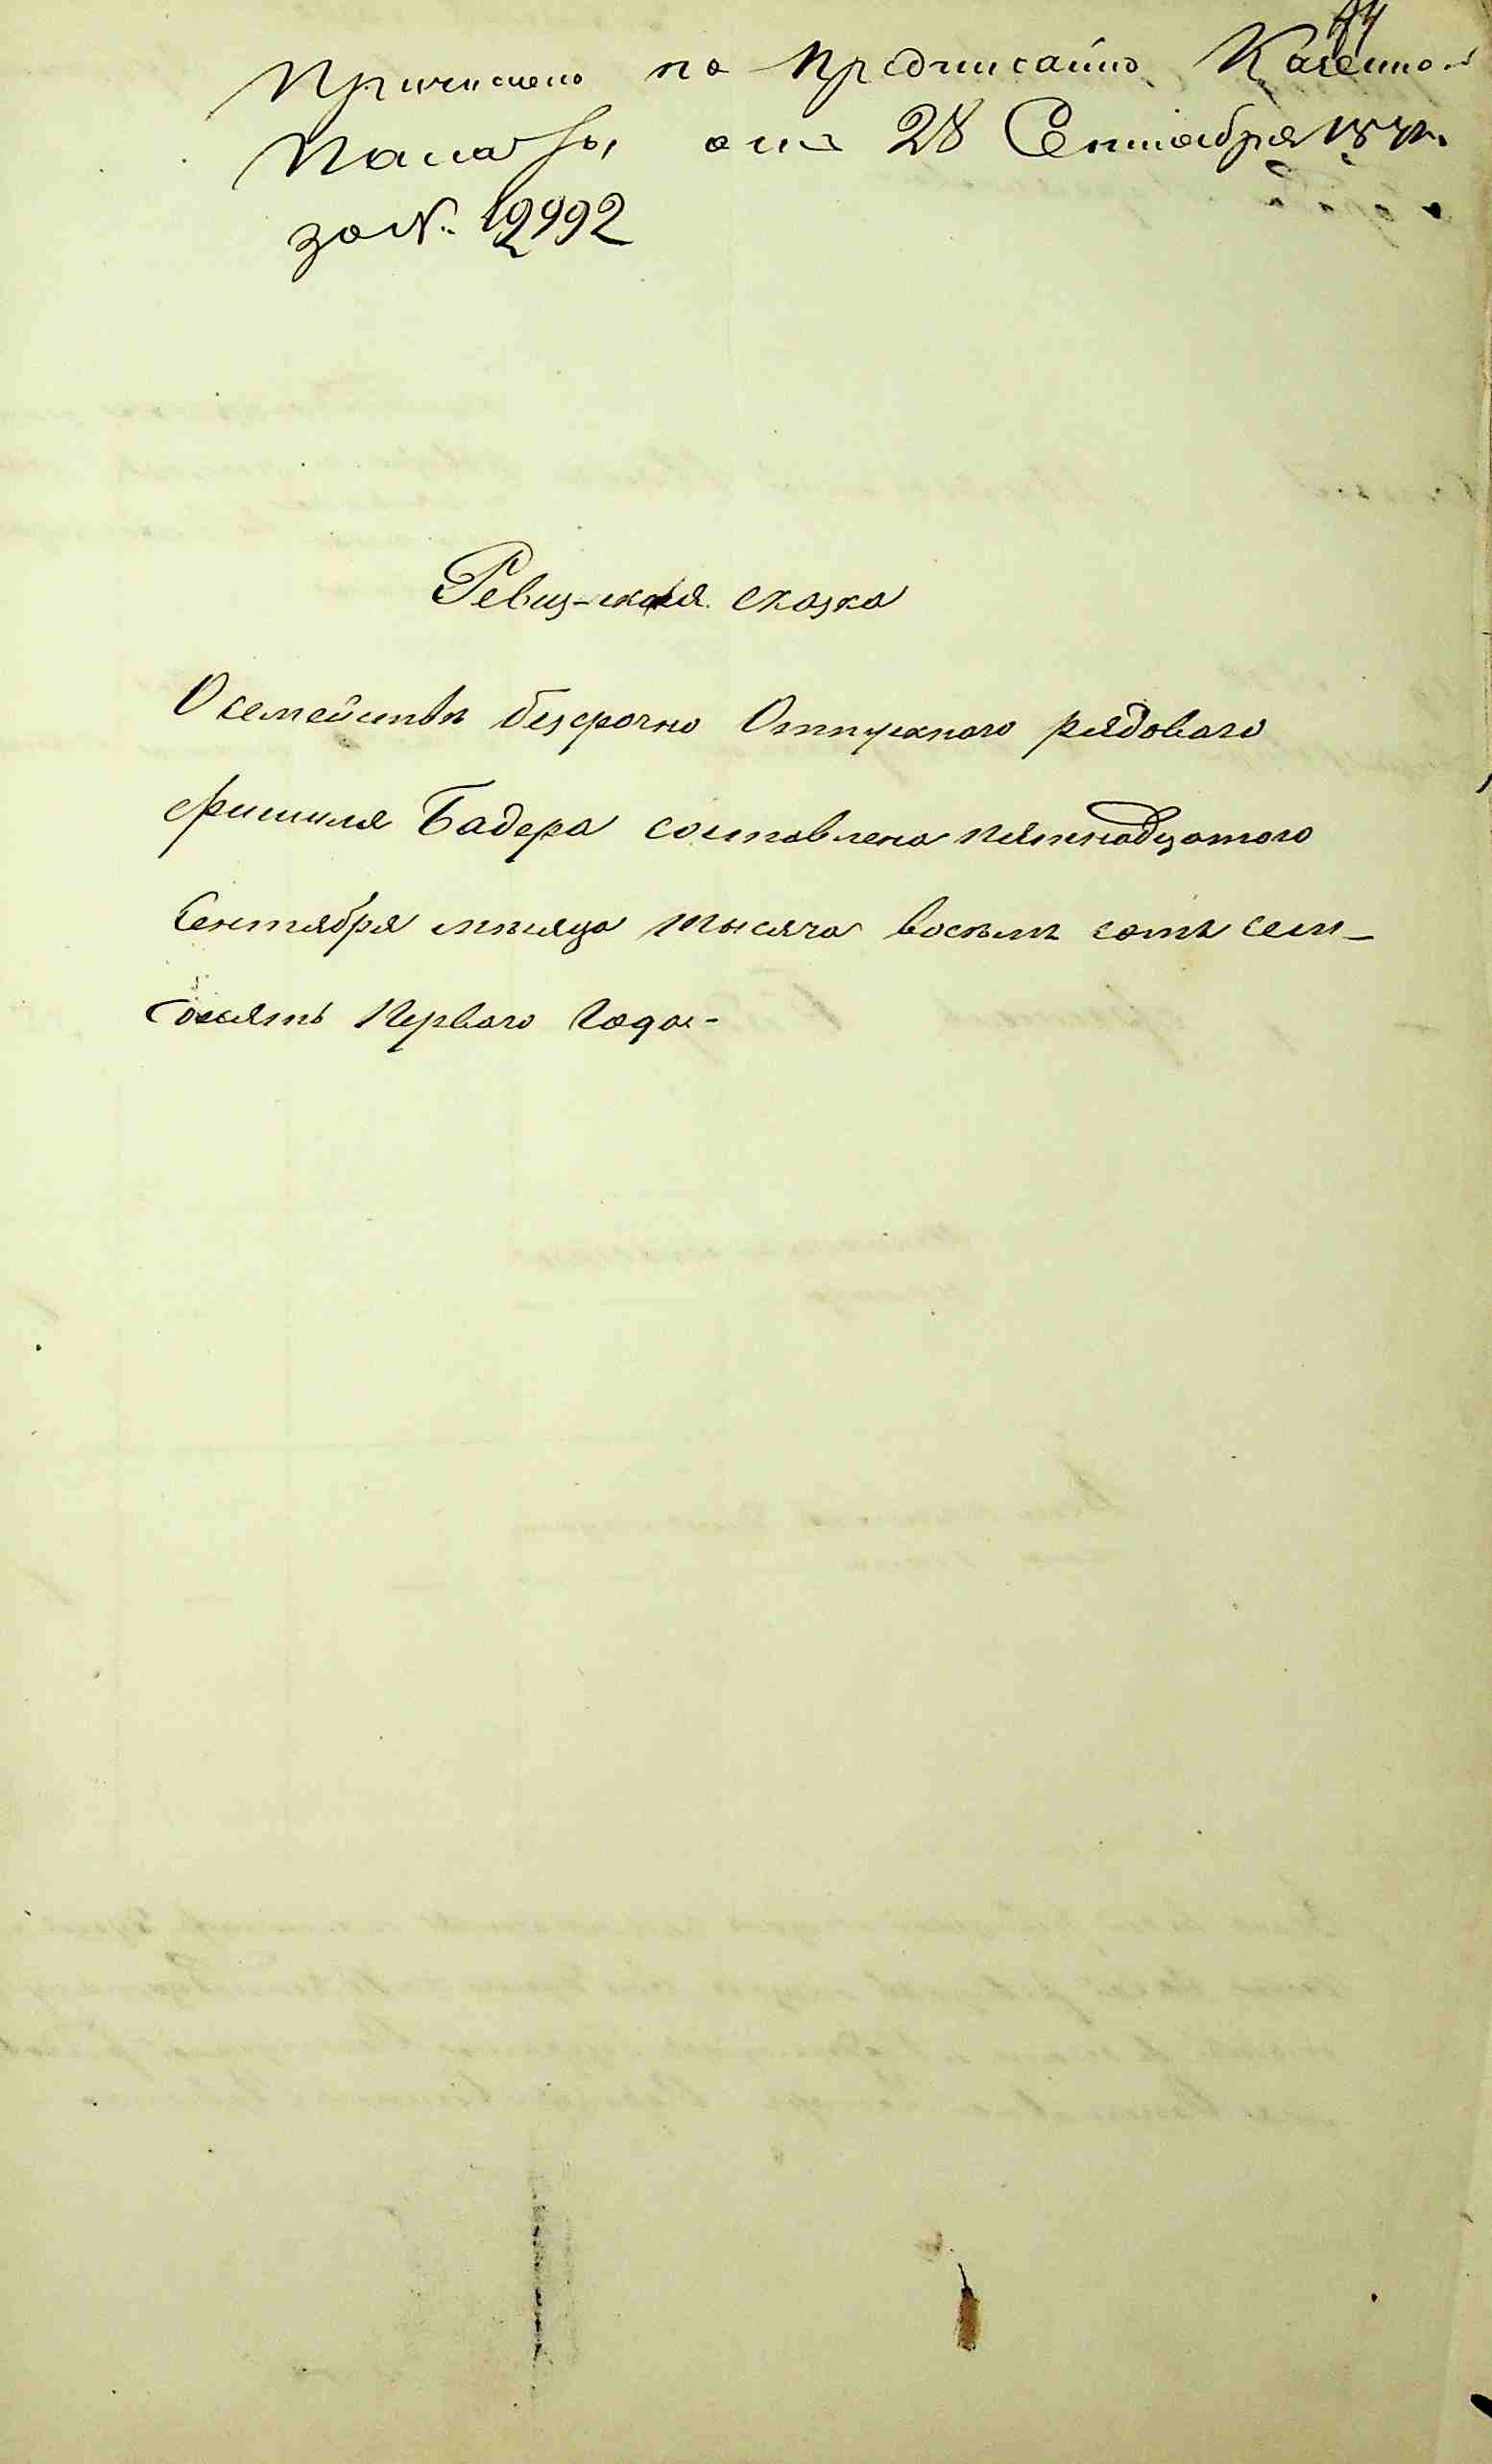 Причислено по предписанію Казенной
Палаты, отъ 28 Сентября 1871 г.
за №. 12992
Ревизская сказка
О семействѣ безсрочно Отпускнаго рядоваго
Фишиля Бадера составлена пятнадцатого
Сентября мѣсяца тысяча восемь сотъ семь-
десятъ Перваго Года.-